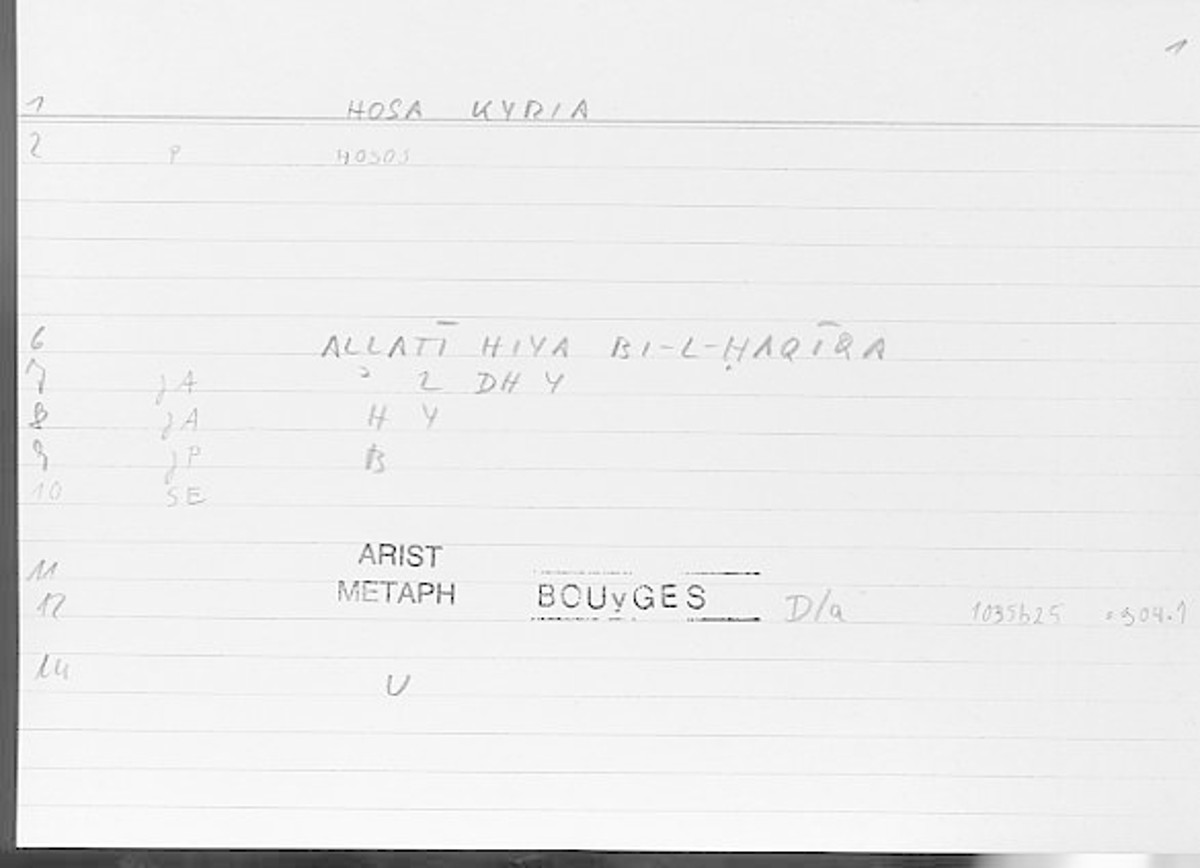 1
1 HOSA KYRIA
2 P HOSOS
6 ALLATĪ HIYA BI-L-ḤAQĪQA
7 jA ʾ L DH Y
8 jA H Y
9 jP B
10 SE
11 ARIST
12 METAPH BOUyGES D/a 1035b25 = 904.1
14 U